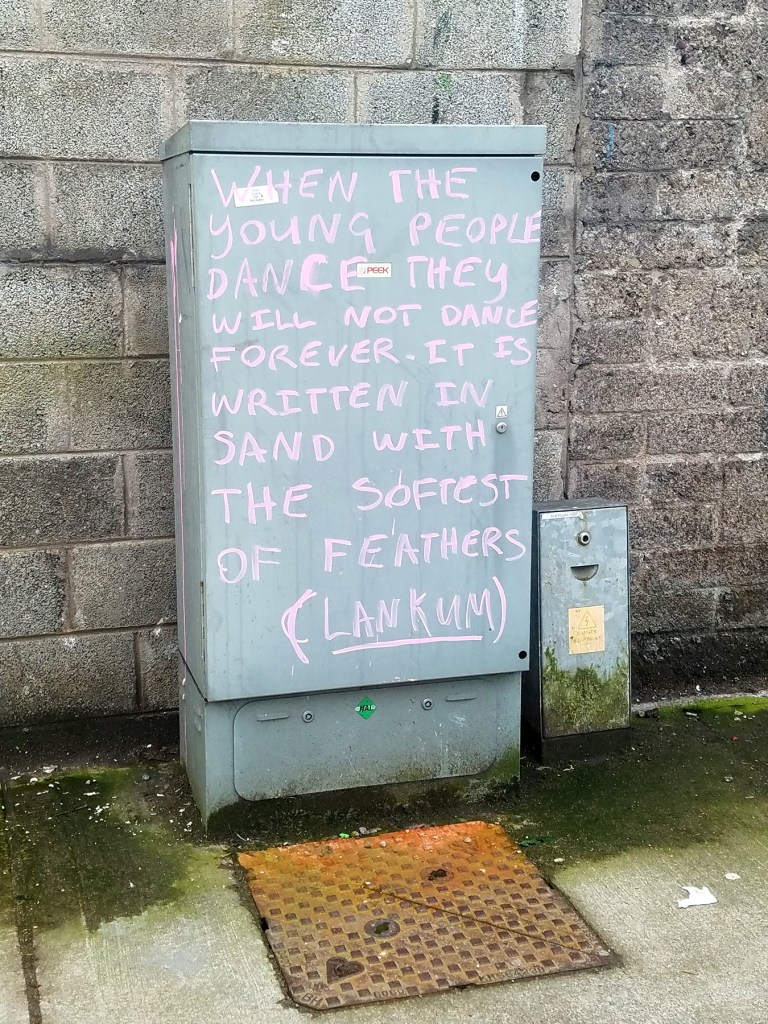 WHEN THE
YOUNG PEOPLE
DANCE THEY
PEEK
WILL NOT DANCE
FOREVER. IT IS
WRITTEN IN
SAND WITH
THE SOFTEST
OF FEATHERS
(LANKUM)